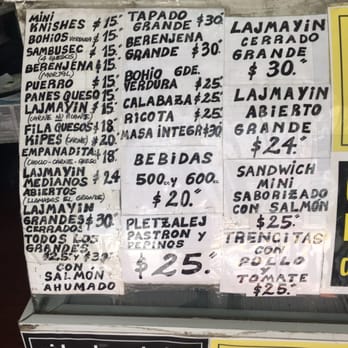 MINI
KNISHES $15.-
BOHIOS VERDURA $15.-
SAMBUSEC $15.-
(4 QUESOS)
BERENJENA $15.-
(MORTAL)
PUERRO $15.-
PANES QUESO 15.-
LAJMAYIN $15.-
(CARNE NO PICANTE)
FILA QUESOS $18.-
KIPES (CARNE) $20.-
EMPANADITA $18.-
(CHOCLO-CARNE-QUESO)
LAJMAYIN
MEDIANOS $24.-
ABIERTOS
(LLAMADAS EL GRANDE)
LAJMAYIN
GRANDES $30.-
CERRADOS
TODOS LOS
GRANDES
$25.- y $30.-
CON
SALMÓN
AHUMADO
TAPADO
GRANDE $30.-
BERENJENA
GRANDE $30.-
BOHIO GDE.
VERDURA $25.-
CALABAZA $25.-
RICOTA $25.-
MASA INTEGR $30.-
BEBIDAS
500cc y 600cc
$20.-
PLETZALEJ
PASTRON y
PEPINOS
$25.-
LAJMAYIN
CERRADO
GRANDE
$30.-
LAJMAYIN
ABIERTO
GRANDE
$24.-
SANDWICH
MINI
SABORIZADO
CON SALMÓN
$25.-
TRENCITAS
CON
POLLO
y
TOMATE
$25.-